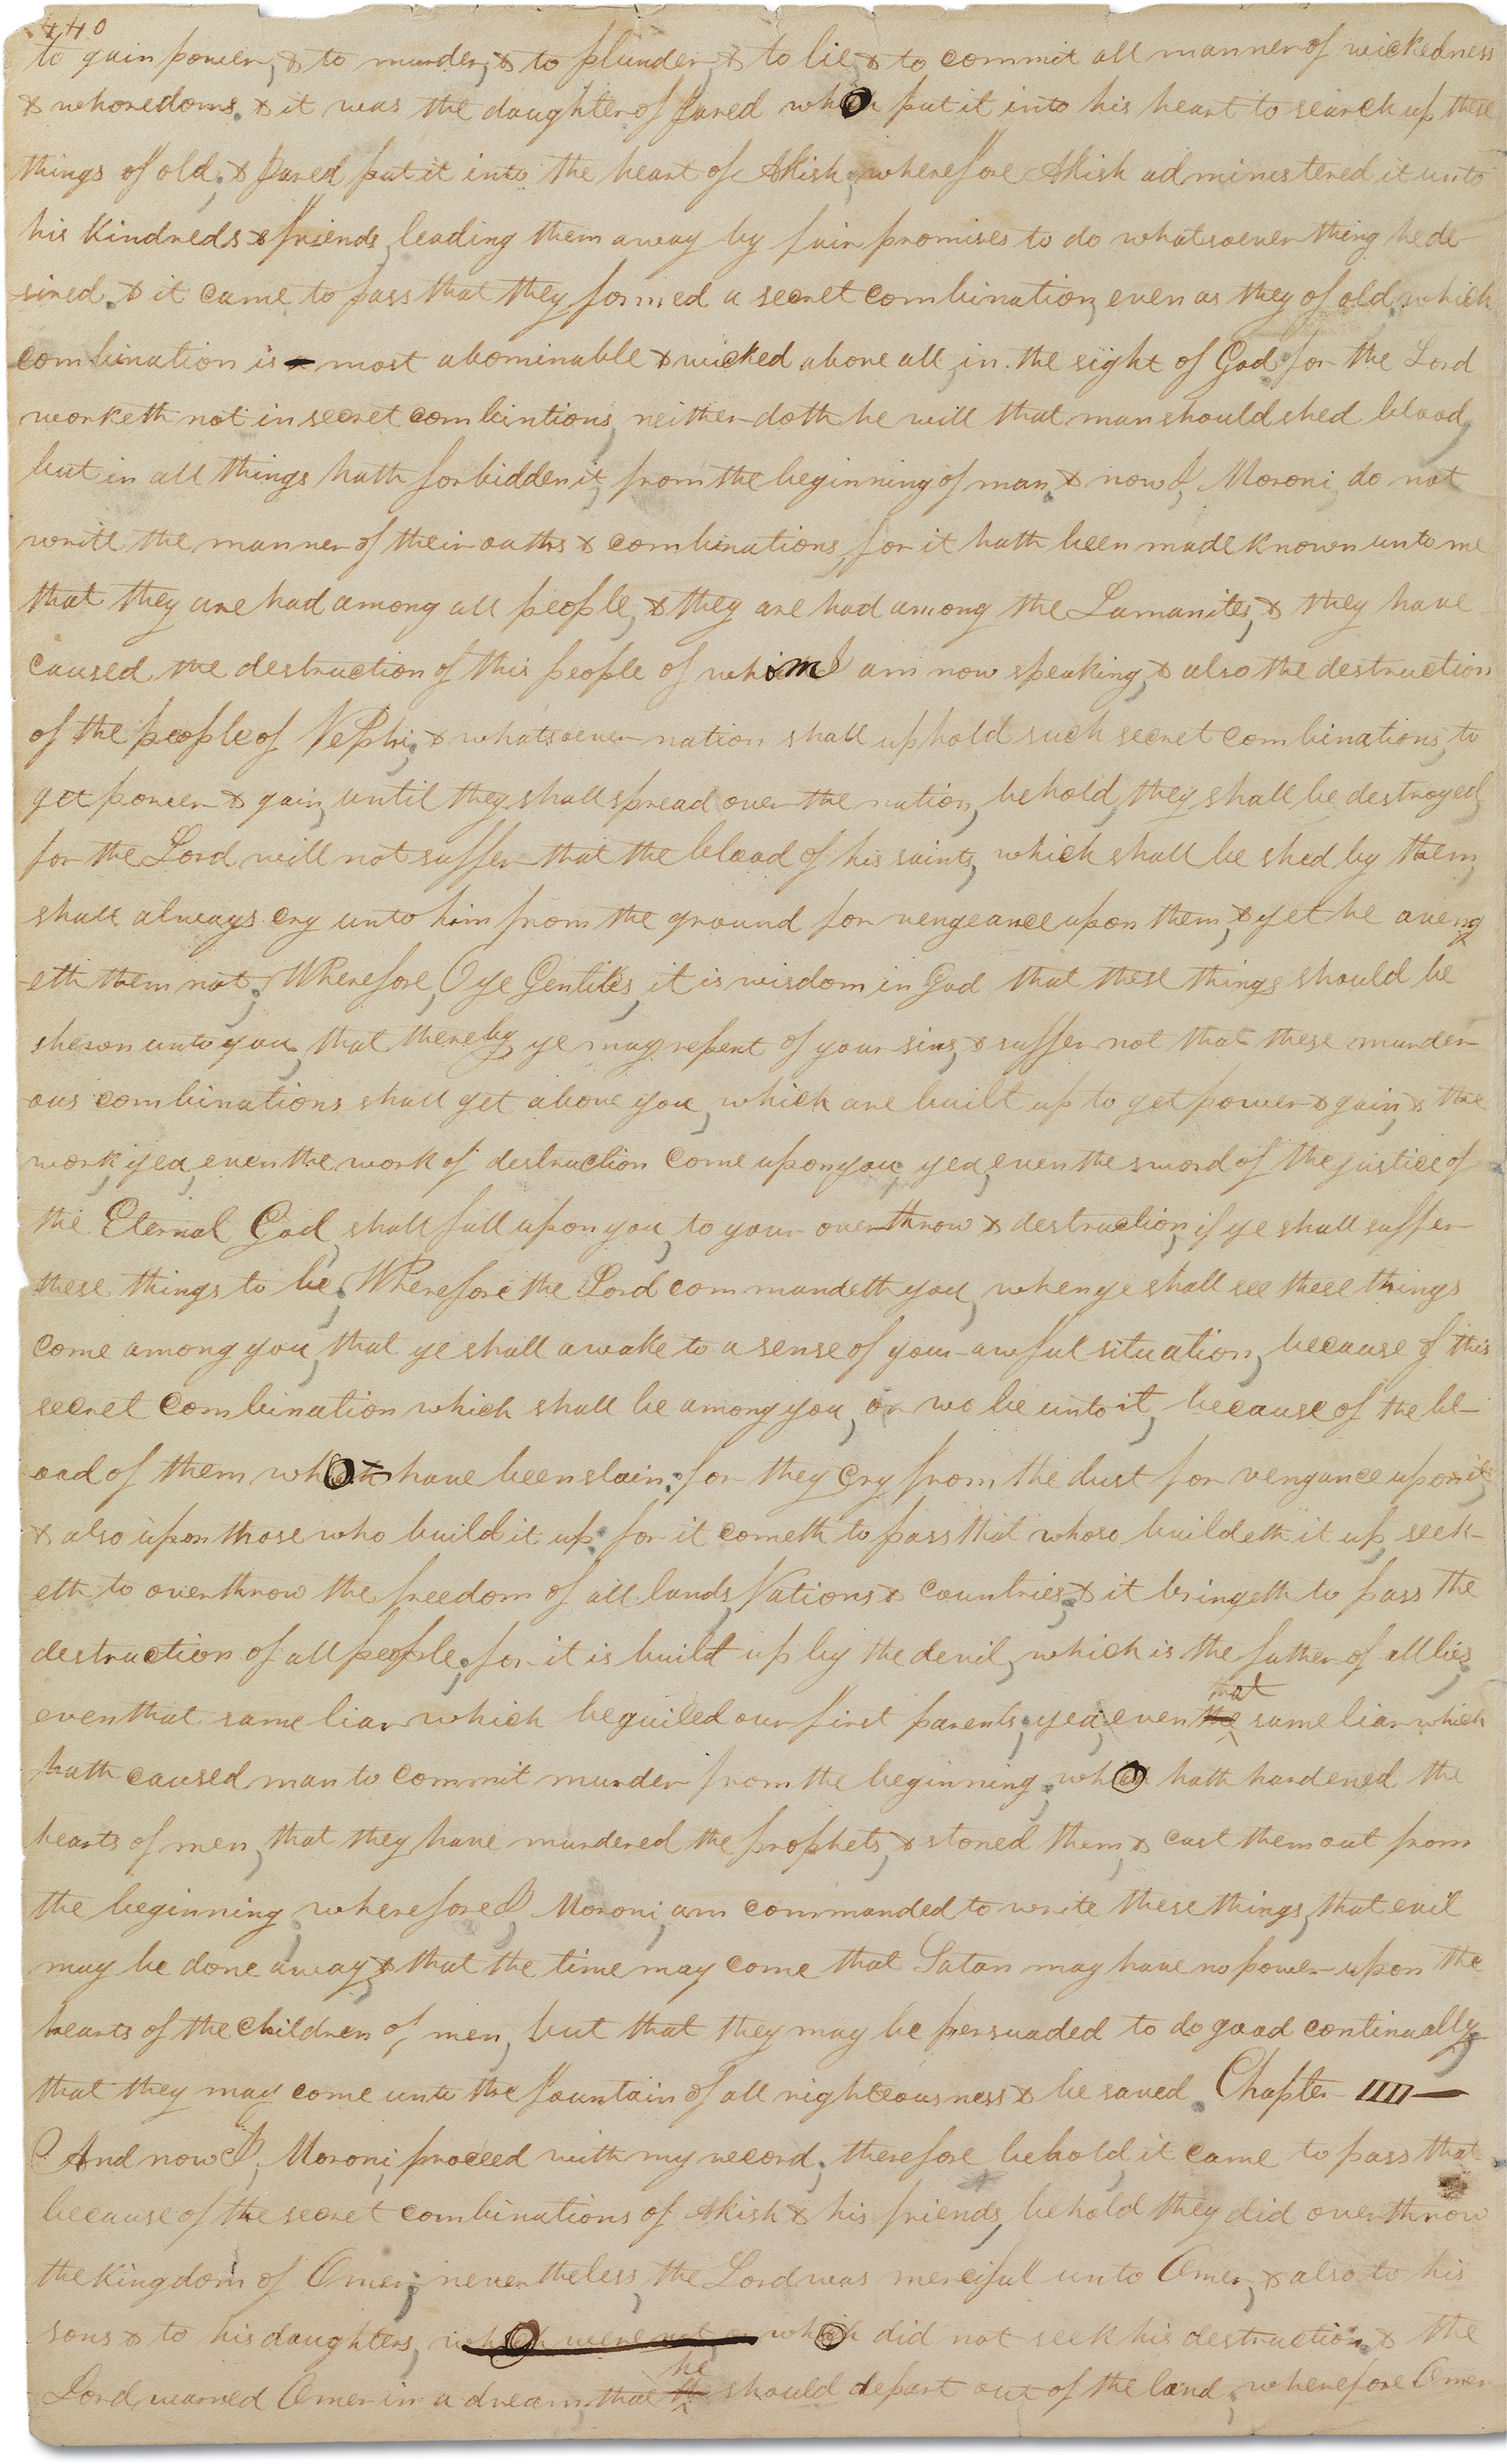 440
to gain power, & to murder, & to plunder, & to lie, & to commit all manner of wickedness
& whoredoms. & it was the daughter of Jared who put it into his heart to search up these
things of old; & Jared put it into the heart of Akish; wherefore Akish administered it unto
his kindreds & friends, leading them away by fair promises to do whatsoever thing he de-
-sired. & it came to pass that they formed a secret combination, even as they of old, which
combination is most abominable & wicked above all, in the sight of God; for the Lord
worketh not in secret combintions, neither doth he will that man should shed blood,
but in all things hath forbidden it, from the beginning of man. & now I, Moroni, do not
write the manner of their oaths & combinations, for it hath been made known unto me
that they are had among all people, & they are had among the Lamanites, & they have
caused the destruction of this people of whom I am now speaking, & also the destruction
of the people of Nephi; & whatsoever nation shall uphold such secret combinations, to
get power & gain, until they shall spread over the nation, behold, they shall be destroyed,
for the Lord will not suffer that the blood of his saints, which shall be shed by them,
shall always cry unto him from the ground for vengeance upon them, & yet he aveng
-eth them not; Wherefore, O ye Gentiles, it is wisdom in God that these things should be
shewn unto you, that thereby ye may repent of your sins, & suffer not that these murder-
-ous combinations shall get above you, which are built up to get power & gain, & the
work, yea, even the work of destruction come upon you; yea, even the sword of the justice of
the Eternal God, shall fall upon you, to your overthrow & destruction, if ye shall suffer
these things to be; Wherefore the Lord commandeth you, when ye shall see these things
come among you, that ye shall awake to a sense of your awful situation, because of this
secret combination which shall be among you, or wo be unto it, because of the bl-
-ood of them who have been slain; for they cry from the dust for vengance upon it,
& also upon those who build it up. for it cometh to pass that whoso buildeth it up, seek-
eth to overthrow the freedom of all lands, Nations & countries; & it bringeth to pass the
destruction of all people; for it is built up by the devil, which is the father of all lies;
that
even that same liar which beguiled our first parents; yea, even the same liar which
hath caused man to commit murder from the beginning; who hath hardened the
hearts of men, that they have murdered the prophets, & stoned them, & cast them out from
the beginning; wherefore I, Moroni, am commanded to write these things, that evil
may be done away, & that the time may come that Satan may have no power upon the
hearts of the children of men, but that they may be persuaded to do good continually,
that they may come unto the fountain of all righteousness & be saved. Chapter IIII—
And now I, Moroni, proceed with my record; therefore behold, it came to pass that
because of the secret combinations of Akish & his friends, behold they did overthrow
the kingdom of Omer; nevertheless, the Lord was merciful unto Omer, & also to his
sons & to his daughters, which were not who did not seek his destruction. & the
he
Lord warned Omer in a dream, that should depart out of the land; wherefore Omer